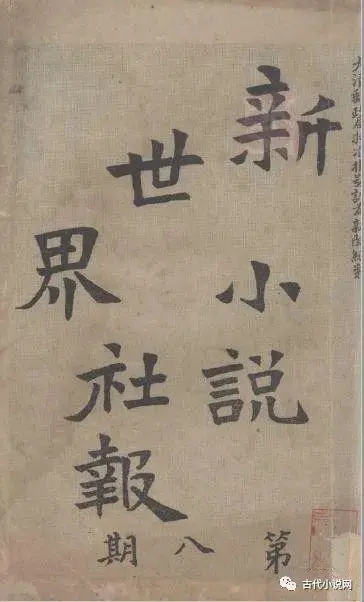 大清郵政局特准掛號認為新聞紙類
新世界
小説
社報
第八期
古代小说网